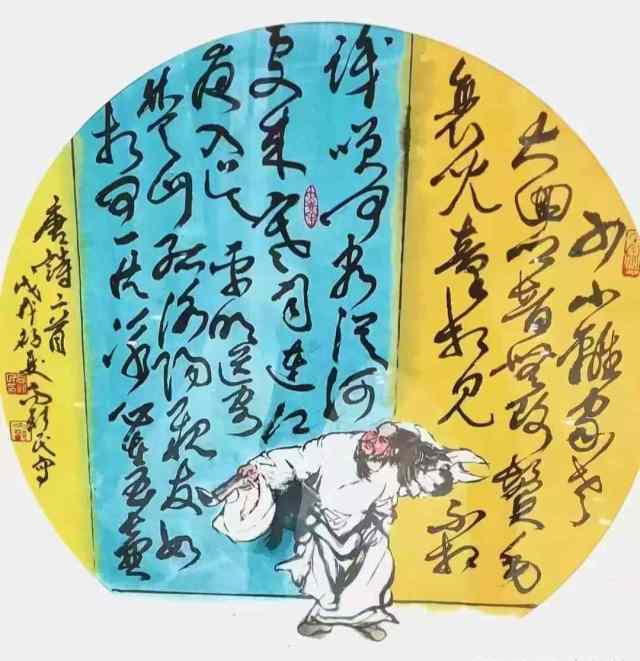 少小離家老
大回鄉音無改鬢毛
衰兒童相見不相
識笑問客從何
處來寒雨連江
夜入吳平明送客
楚山孤洛陽親友如
相問一片冰心在玉壺
唐詩二首
戊戌初夏